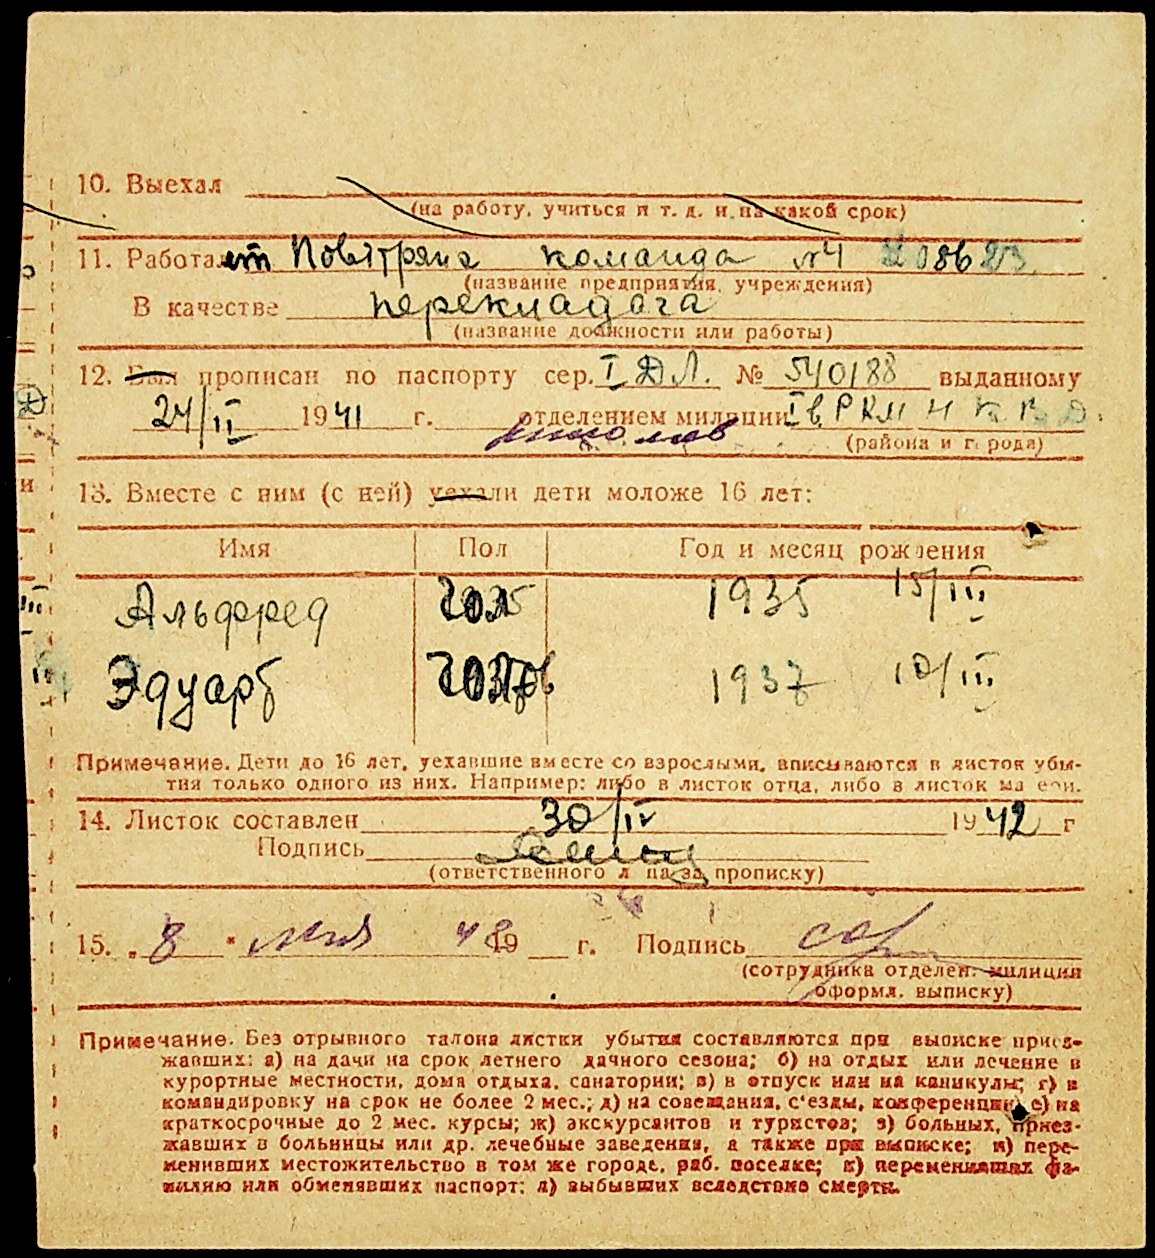 10. Выехал
(на работу, учиться и т. д. и на какой срок)
11. Работает Повітряна команда №4 L 08623
(название предприятия, учреждения)
В качестве перекладача
(название должности или работы)
12. Был прописан по паспорту сер. I ДЛ. № 540188 выданному
24/II 1941 г. отделением милиции I в. РКМ НКВД.
(района и города)
13. Вместе с ним (с ней) уехали дети моложе 16 лет:
Имя Пол Год и месяц рождения
Альфред 1935 15/III
Эдуард 1937 10/III
Примечание. Дети до 16 лет, уехавшие вместе со взрослыми, вписываются в листок убы-
тия только одного из них. Например: либо в листок отца, либо в листок матери.
14. Листок составлен 30/IV 1942 г
Подпись
(ответственного лица за прописку)
15. „8" мая 42 19 г. Подпись
(сотрудника отделен. милиции
оформл. выписку)
Примечание. Без отрывного талона листки убытия составляются при выписке приез-
жавших: а) на дачи на срок летнего дачного сезона; б) на отдых или лечение в
курортные местности, дома отдыха, санатории; в) в отпуск или на каникулы; г) в
командировку на срок не более 2 мес.; д) на совещания, с'езды, конференции; е) на
краткосрочные до 2 мес. курсы; ж) экскурсантов и туристов; з) больных, приез-
жавших в больницы или др. лечебные заведения, а также при выписке; и) пере-
менивших местожительство в том же городе, раб. поселке; к) переменивших фа-
милию или обменявших паспорт; л) выбывших вследствие смерти.